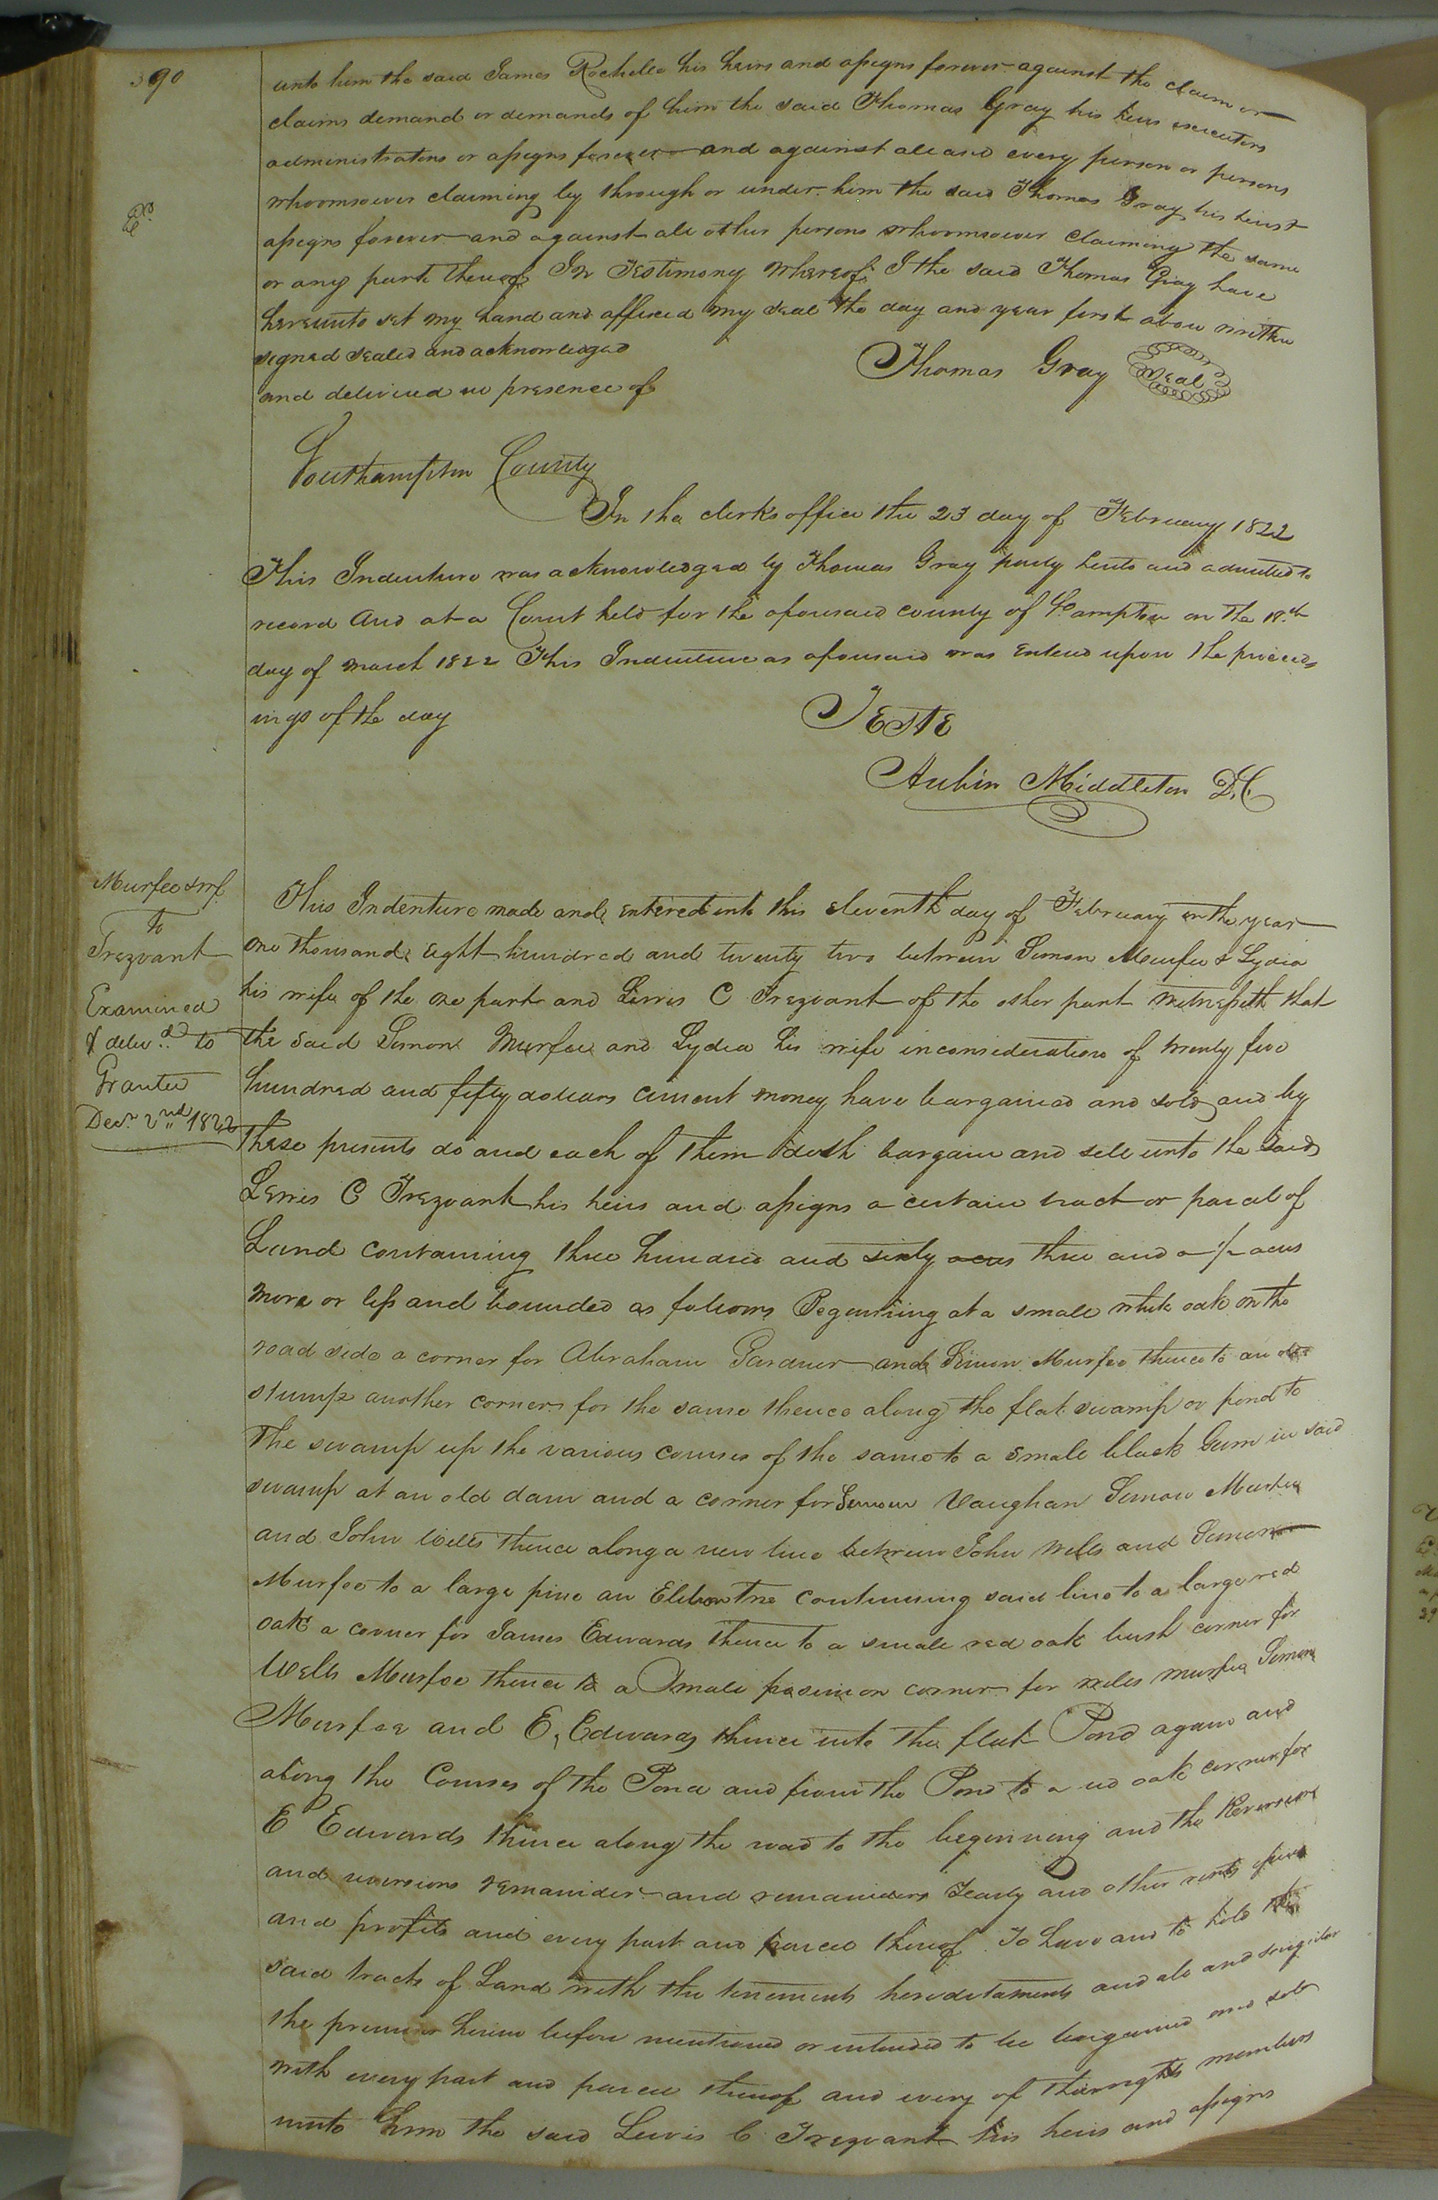 390
unto him the said James Rochelle his heirs and assigns forever against the claim or
claims demand or demands of him the said Thomas Gray his heirs executors
administrators or assigns forever and against all and every person or persons
Exd
whoomsoever claiming by through or under him the said Thomas Gray his heirs &
assigns forever and against all other persons whoomsoever claiming the same
or any part thereof In Testimony Whereof I the said Thomas Gray have
hereunto set my hand and affixed my seal the day and year first above written
signed sealed and acknowledged
and delivered in presence of
Thomas Gray Seal
Southampton County
In the clerks office the 23 day of February 1822
This Indenture was acknowledged by Thomas Gray party hereto and admitted to
record And at a Court held for the aforesaid county of So.ampton on the 18th
day of March 1822 This Indenture as aforesaid was Entered upon the proceed
ings of the day
Teste
Aubin Middleton D.C.
Murfee & wf.
To
Trezvant
Examined
& delivd to
Grantee
Decr 2nd 1822
This Indenture made and entered into this eleventh day of February in the year
one thousand eight hundred and twenty two between Simon Murfee & Lydia
his wife of the one part and Lewis C Trezvant of the other part Witnesseth that
the said Simon Murfee and Lydia his wife in consideration of twenty five
hundred and fifty dollars current money have bargained and sold and by
these presents do and each of them doth bargain and sell unto the said
Lewis C Trezvant his heirs and assigns a certain tract or parcel of
Land containing three hundred and sixty acres three and a 1/2 acres
more or less and bounded as follows Beginning at a small white oak on the
road side a corner for Abraham Gardner and Simon Murfee thence to an
stump another corner for the same thence along the flat swamp or pond to
the swamp up the various courses of the same to a small black Gum in said
swamp at an old dam and a corner for Simon Vaughan Simon Murfee
and John Wells thence along a new line between John Wells and Simon
Murfee to a large pine an Elbow tree continuing said line to a large red
oak a corner for James Edwards thence to a small red oak bush corner for
Wells Murfee thence to a Small posimon corner for Wells Murfee Simon
Murfee and E, Edwards thence into the flat Pond again and
along the Courses of the Pond and from the Pond to a red oak corner for
E Edwards thence along the road to the beginning and the Reversions
and reversions remainder and remainders Yearly and other rents
and profits and every part and parcel thereof To have and to hold the
said tract of Land with the tenements hereditaments and all and singular
the premises herein before mentioned or intended to be bargained and sold
with every part and parcel thereof and every of their rights members
unto him the said Lewis C Trezvant his heirs and assigns